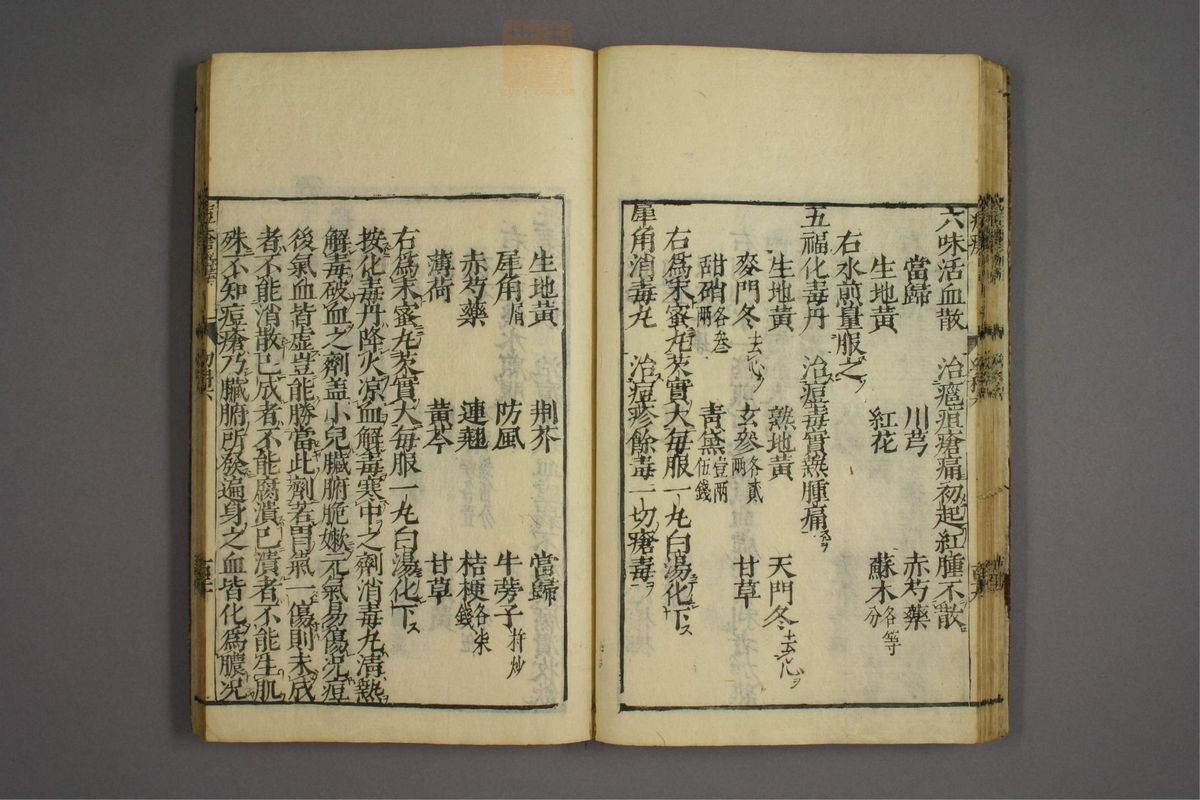 六味活血散　治癰疽瘡痛初起紅腫不散
當歸　川芎　赤芍藥
生地黃　紅花　蘇木各等分
右水煎量服之
五福化毒丹　治痘毒實熱腫痛
生地黃　熟地黃　天門冬去心
麥門冬去心　玄參各貳兩　甘草
甜硝各叁兩　青黛壹兩伍錢
右爲末蜜丸芡實大每服一丸白湯化下
犀角消毒丸　治痘疹餘毒一切瘡毒
生地黃　荆芥　當歸
犀角屑　防風　牛蒡子杵炒
赤芍藥　連翹　桔梗各柒錢
薄荷　黃芩　甘草
右爲末蜜丸芡實大每服一丸白湯化下
按化毒丹降火凉血解毒寒中之劑消毒丸清熱
解毒破血之劑盖小兒臟腑脆嫩元氣易傷况痘
後氣血皆虛豈能勝當此劑若胃氣一傷則未成
者不能消散已成者不能腐潰已潰者不能生肌
殊不知痘瘡乃臟腑所發遍身之血皆化爲膿况